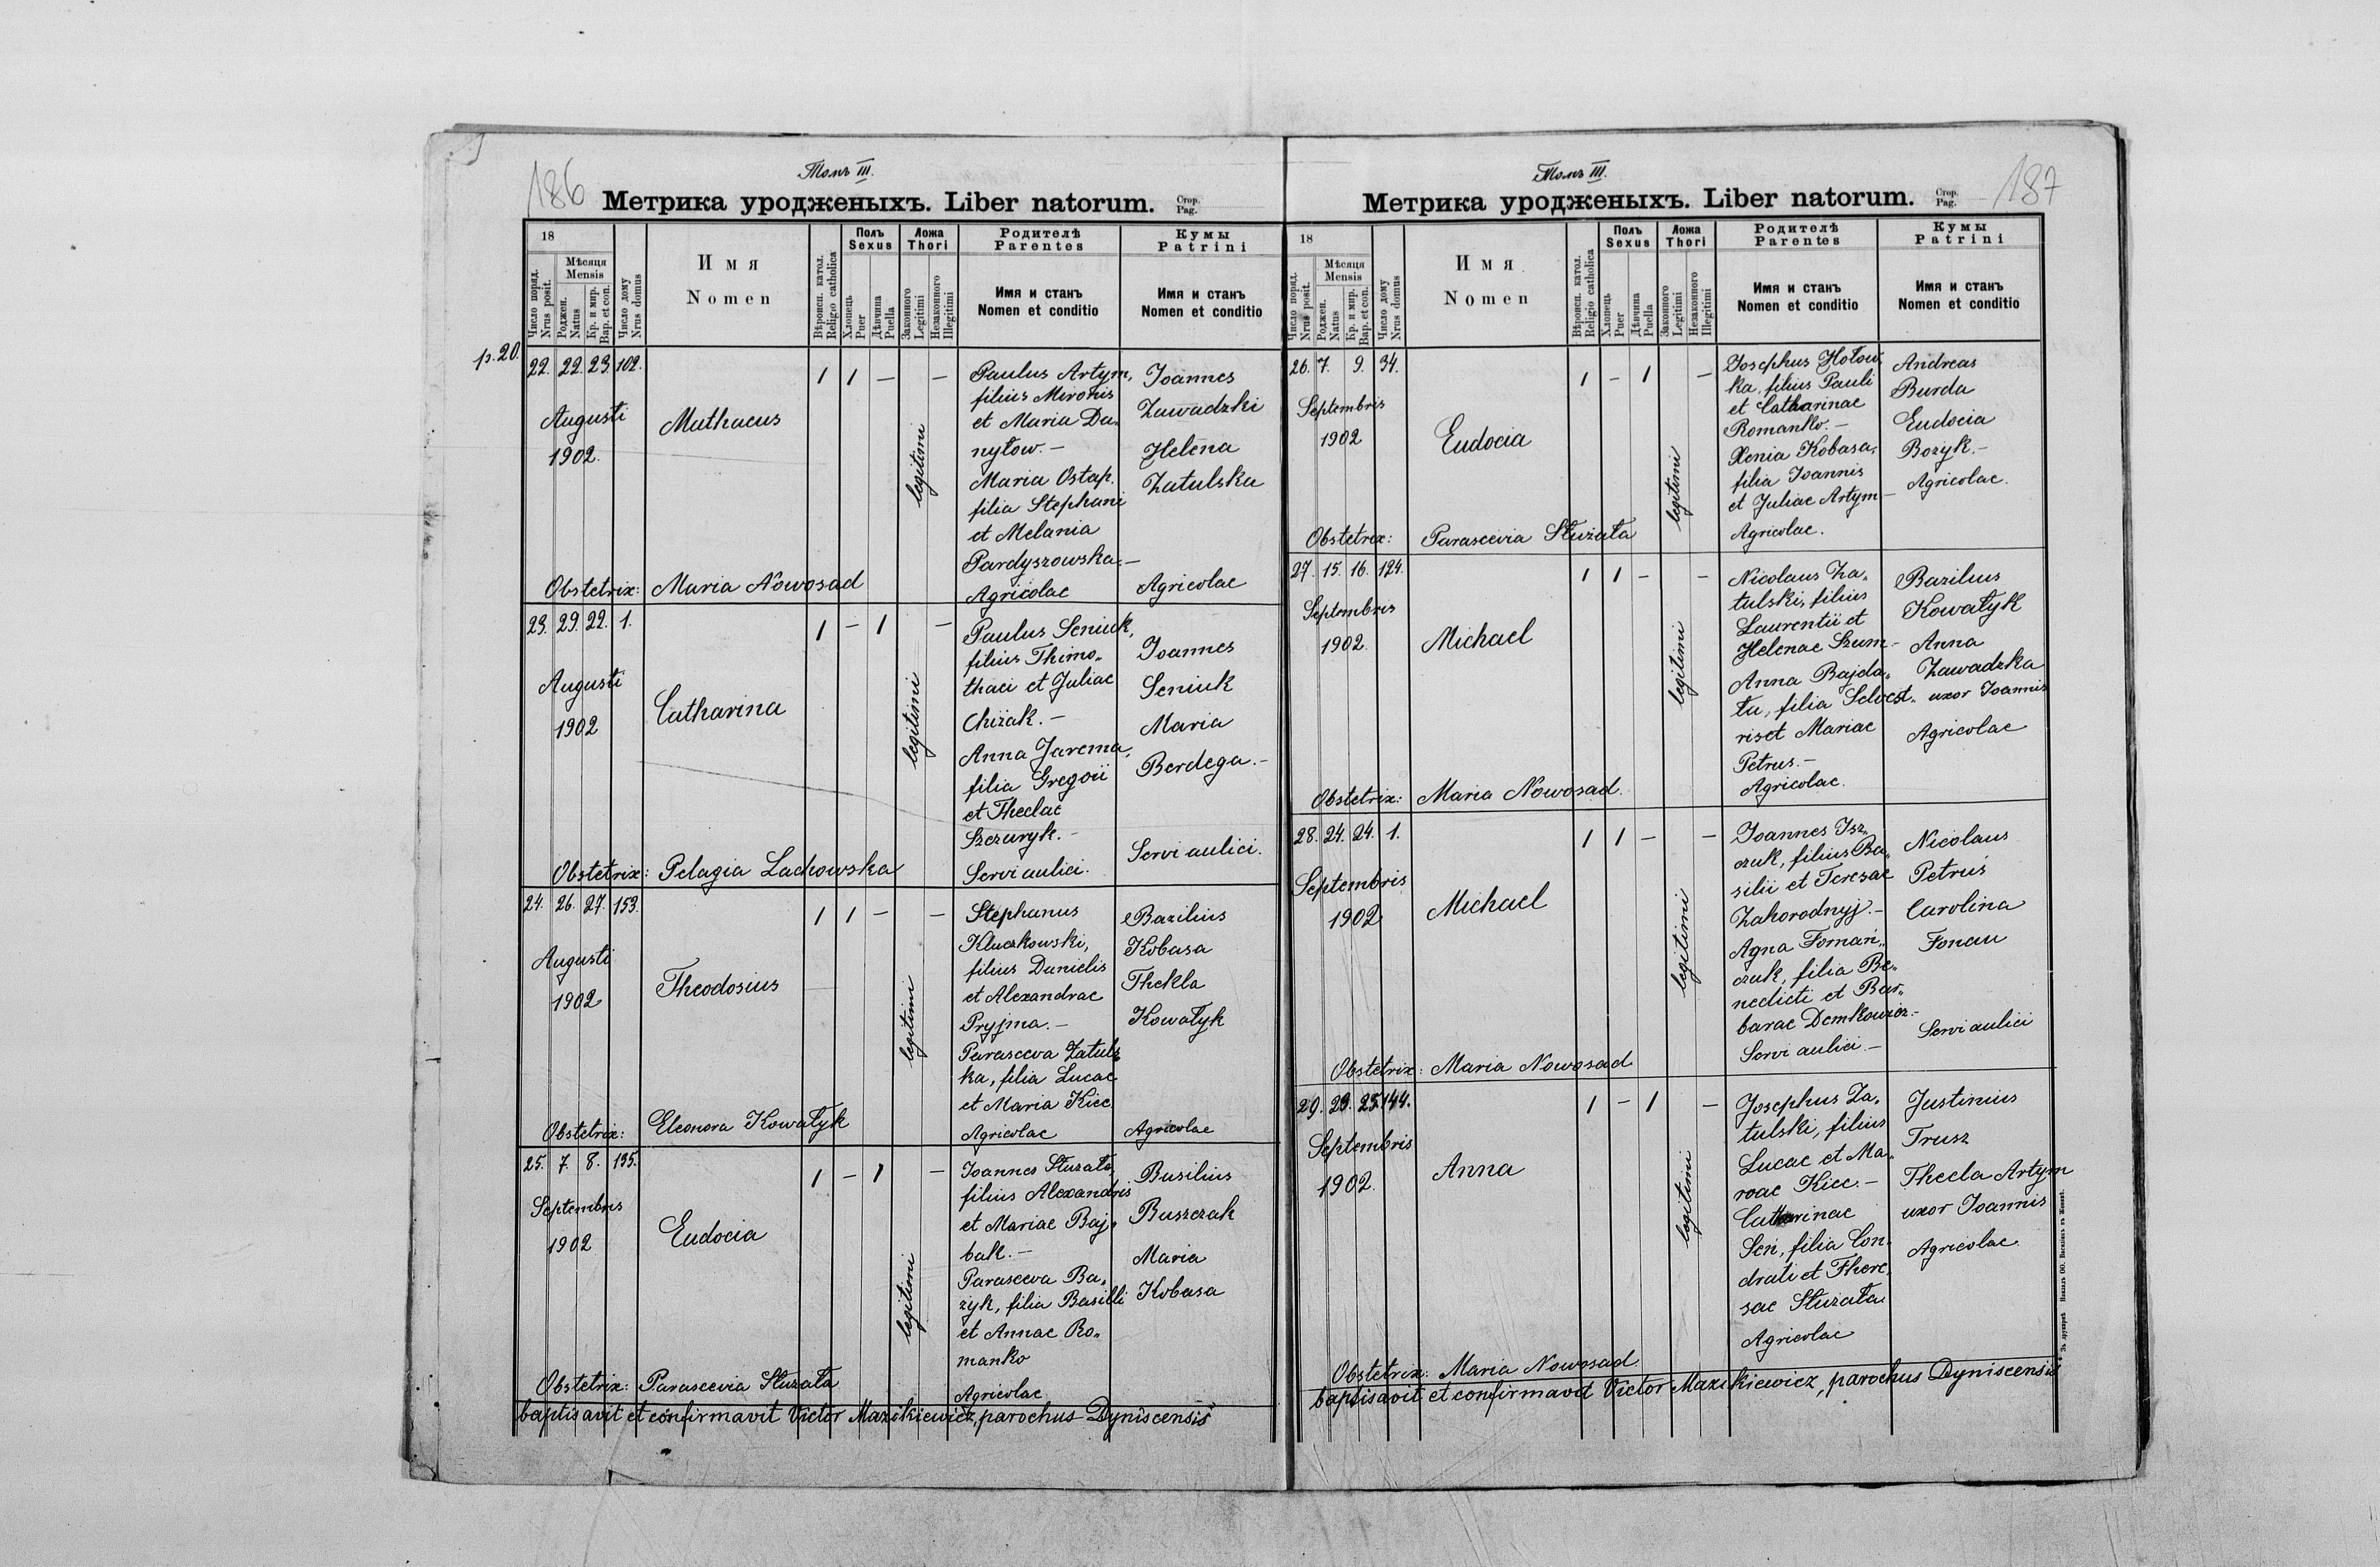 186
Томъ III.
Метрика уродженыхъ. Liber natorum. Стор. Pag.
18
Число поряд. Nrus posit.
Мѣсяця Mensis
Роджен. Natus
Кр. и мир. Bap. et con.
Число дому Nrus domus
Имя
Nomen
Вѣроисп. катол. Religio catholica
Полъ Sexus
Хлопець Puer
Дѣвчина Puella
Ложа Thori
Законного Legitimi
Незаконного Illegitimi
Родителѣ Parentes
Имя и станъ
Nomen et conditio
Кумы Patrini
Имя и станъ
Nomen et conditio
p. 20.
22. 22. 23. 102.
Augusti
1902.
Mathaeus
1 1 – –
legitimi
Paulus Artym,
filius Mironis
et Maria Da„
nyłow. –
Maria Ostap.
filia Stephani
et Melania
Pardyszowska. –
Agricolae
Joannes
Zawadzki
Helena
Zatulska
Agricolae
Obstetrix: Maria Nowosad
23. 29. 22. 1.
Augusti
1902
Catharina
1 – 1 –
legitimi
Paulus Seniuk,
filius Thimo„
thaei et Juliae
Chiżak. –
Anna Jarema,
filia Gregoii
et Theclae
Szczuryk. –
Servi aulici.
Joannes
Seniuk
Maria
Berdega. –
Servi aulici.
Obstetrix: Pelagia Lachowska
24. 26. 27. 153.
Augusti
1902
Theodosius
1 1 – –
legitimi
Stephanus
Kluczkowski,
filius Danielis
et Alexandrae
Pryjma. –
Parasceva Zatuls„
ka, filia Lucae
et Maria Kiec.
Agricolae
Bazilius
Kobasa
Thekla
Kowałyk
Agricolae
Obstetrix: Eleonora Kowałyk
25. 7. 8. 195.
Septembris
1902
Eudocia
1 – 1 –
legitimi
Joannes Służała,
filius Alexandris
et Mariae Baj„
bak. –
Parasceva Ba„
żyk, filia Basilli
et Annae Ro„
manko
Agricolae
Basilius
Buszczak
Maria
Kobasa
Obstetrix: Parascevia Służała
baptisavit et confirmavit Victor Mazikiewicz, parochus Dyniscensis
187
Томъ III.
Метрика уродженыхъ. Liber natorum. Стор. Pag.
18
Число поряд. Nrus posit.
Мѣсяця Mensis
Роджен. Natus
Кр. и мир. Bap. et con.
Число дому Nrus domus
Имя
Nomen
Вѣроисп. катол. Religio catholica
Полъ Sexus
Хлопець Puer
Дѣвчина Puella
Ложа Thori
Законного Legitimi
Незаконного Illegitimi
Родителѣ Parentes
Имя и станъ
Nomen et conditio
Кумы Patrini
Имя и станъ
Nomen et conditio
26. 7. 9. 34.
Septembris
1902
Eudocia
1 – 1 –
legitimi
Josephus Hołow„
ka, filius Pauli
et Catharinae
Romanko. –
Xenia Kobasa,
filia Joannis
et Juliae Artym –
Agricolae.
Andreas
Burda
Eudocia
Bożyk. –
Agricolae.
Obstetrix: Parascevia Służała
27. 15. 16. 124.
Septembris
1902.
Michael
1 1 – –
legitimi
Nicolaus Za„
tulski, filius
Laurentii et
Helenae Szum –
Anna Bajda„
ła, filia Selvest„
riset Mariae
Petrus. –
Agricolae.
Bazilius
Kowałyk
Anna
Zawadzka
uxor Joannis
Agricolae
Obstetrix: Maria Nowosad.
28. 24. 24. 1.
Septembris
1902
Michael
1 1 – –
legitimi
Joannes Isz„
czuk, filius Ba„
silii et Teresae
Zahorodnyj. –
Agna Fornań„
czuk, filia Be„
nedicti et Bar„
barae Demkowicz. –
Servi aulici. –
Nicolaus
Petruś
Carolina
Fonau
Servi aulici
Obstetrix: Maria Nowosad
29. 23. 25. 144.
Septembris
1902.
Anna
1 – 1 –
legitimi
Josephus Za„
tulski, filius
Lucae et Ma„
roae Kiec. –
Catharinae
Seń, filia Con„
drati et There„
sae Służała.
Agricolae
Justinius
Trusz
Thecla Artym
uxor Joannis
Agricolae.
Obstetrix: Maria Nowosad.
baptisavit et confirmavit Victor Mazikiewicz, parochus Dyniscensis